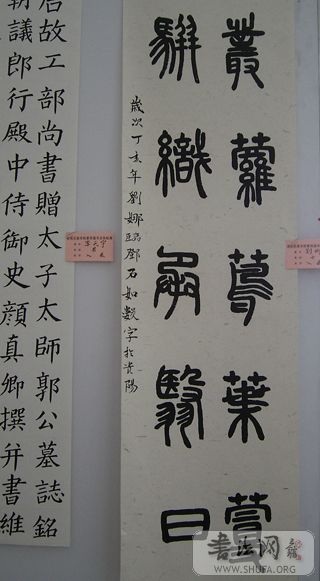 叢蘿蔦葉蔓
駢織承翳日
歲次丁亥年劉娜臨鄧石如數字於貴陽
故工部尚書贈太子太師郭公墓誌銘
朝議郎行殿中侍御史顏真卿撰并書維
书法网
WWW.SHUFA.ORG